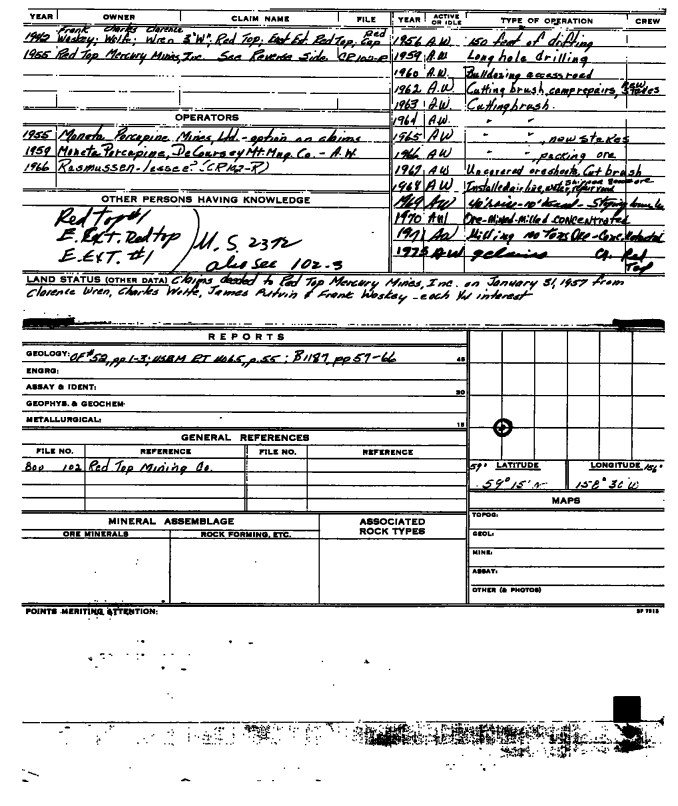 YEAR OWNER CLAIM NAME FILE YEAR ACTIVE OR IDLE TYPE OF OPERATION CREW
Frank Charles Clarence
1942 Waskey; Wolfe; Wren 3"W"; Red Top; East Ext. Red Top, Red Cap
1955 Red Top Mercury Mines, Inc. See Reverse Side. CP102-R
1956 A.W. 150 feet of drifting
1959 A.W. Long hole drilling
1960 A.W. Bulldozing access road
1962 A.W. Cutting brush, camp repairs, new stakes
1963 A.W. Cutting brush.
OPERATORS
1964 A.W. " "
1955 Moneta Porcupine Mines, Ltd. - option on claims
1965 A.W " " , new stakes
1959 Moneta Porcupine, DeCoursey Mt. Mng. Co. - A.W.
1966 A.W " " , packing ore
1966 Rasmussen - lessee? (CP102-R)
1967 A.W Uncovered ore shoots, Cut brush
1968 A.W Installed air line,
OTHER PERSONS HAVING KNOWLEDGE
1969 AW
Red Top #1
1970 AW Ore-Mined-Milled concentrated
E. Ext. Red top
M.S. 2372
1971 AW Milling 100 Tons Ore - Conc.
E. Ext. #1
also see 102-3
1975 AW claims Red Top
LAND STATUS (OTHER DATA) Claims deeded to Red Top Mercury Mines, Inc. on January 31, 1957 from
Clarence Wren, Charles Wolfe, James Putvin & Frank Waskey - each 1/4 interest
REPORTS
GEOLOGY: OF #52, pp 1-3; USBM RI 4065, p.55; B1187, pp 57-66 45
ENGRG:
ASSAY & IDENT: 30
GEOPHYS. & GEOCHEM:
METALLURGICAL: 15
GENERAL REFERENCES
FILE NO. REFERENCE FILE NO. REFERENCE
102 Red Top Mining Co.
59° LATITUDE LONGITUDE 156°
59° 15' N 158° 30' W
MAPS
MINERAL ASSEMBLAGE
ASSOCIATED ROCK TYPES
ORE MINERALS ROCK FORMING, ETC.
TOPOG:
GEOL:
MINE:
ASSAY:
OTHER (& PHOTOS)
POINTS MERITING ATTENTION: